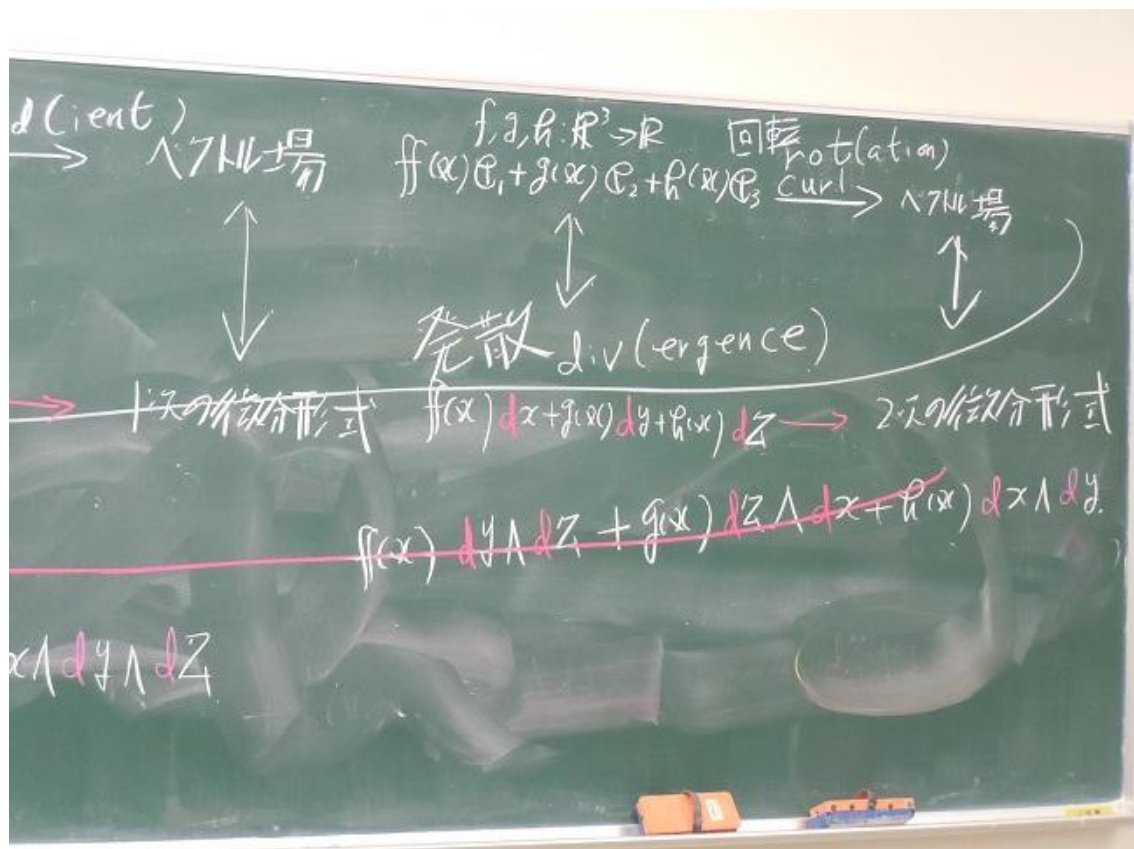 d(ient)
→ ベクトル場
f,g,h:ℝ³→ℝ
f(x)e₁+g(x)e₂+h(x)e₃
回転
rot(ation)
curl → ベクトル場
発散 div(ergence)
→ 1次の微分形式
f(x)dx+g(x)dy+h(x)dz → 2次の微分形式
f(x)dy∧dz+g(x)dz∧dx+h(x)dx∧dy.
x∧dy∧dz